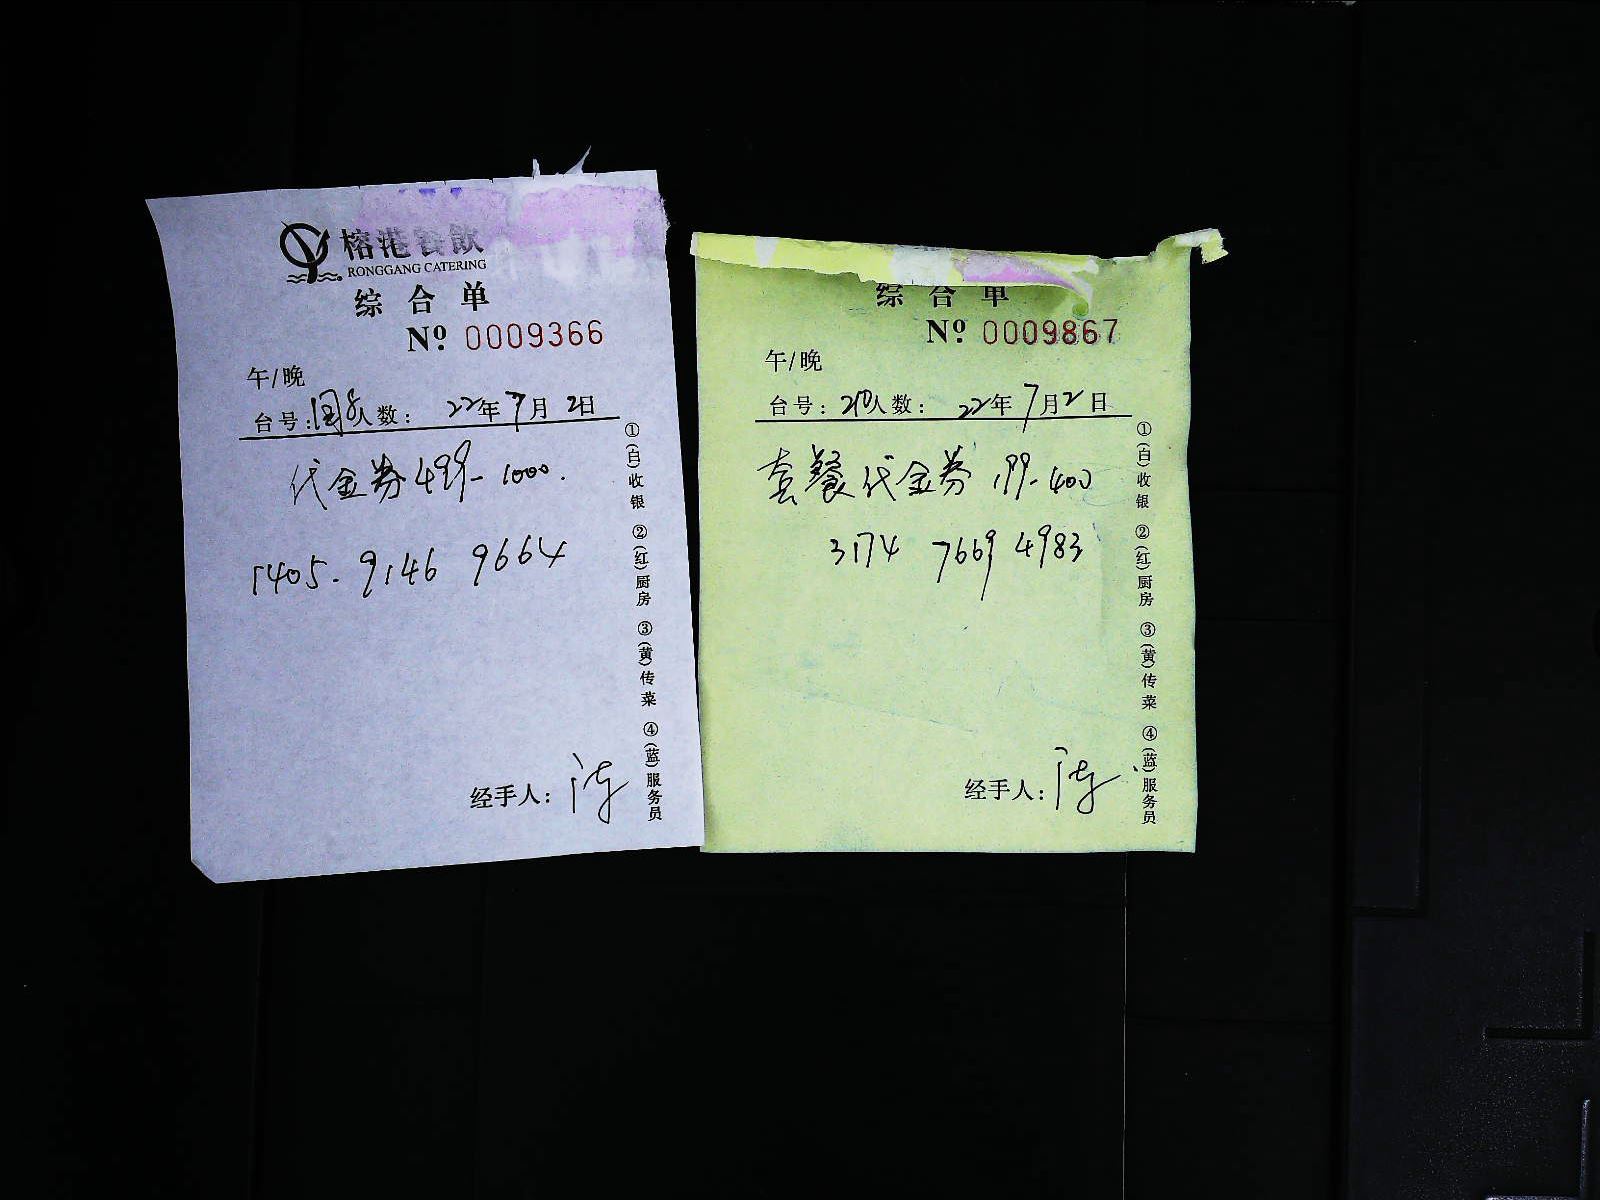 榕港餐飲
RONGGANG CATERING
综合单
Nº 0009366
午/晚
台号: 人数: 22年7月2日
代金券499-1000.
1405. 9146 9664
经手人:
①(白)收银 ②(红)厨房 ③(黄)传菜 ④(蓝)服务员
综合单
Nº 0009867
午/晚
台号: 210人数: 22年7月2日
套餐代金券199-400
3174 7669 4983
经手人:
①(白)收银 ②(红)厨房 ③(黄)传菜 ④(蓝)服务员